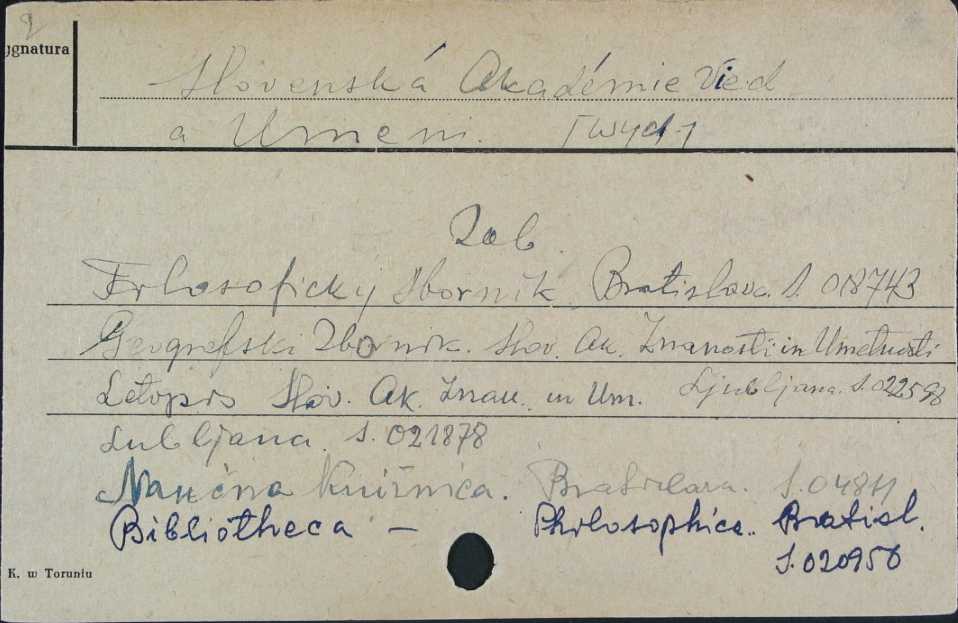 ygnatura
Slovenská Akadémie Vied
a Umeni. [wyd-]
Zob.
Filosofický Sborník. Bratislava. S. 018743
Geografski Zbornik. Slov. Ak. Znanosti in Umetnosti
Ljubljana. S. 022598
Letopis Slov. Ak. Znan. in Um.
Lubljana. S. 021878
Naučna Knižnica. Bratislava. S. 04811
Bibliotheca – Philosophica. Bratisl.
S. 020956
K. w Toruniu